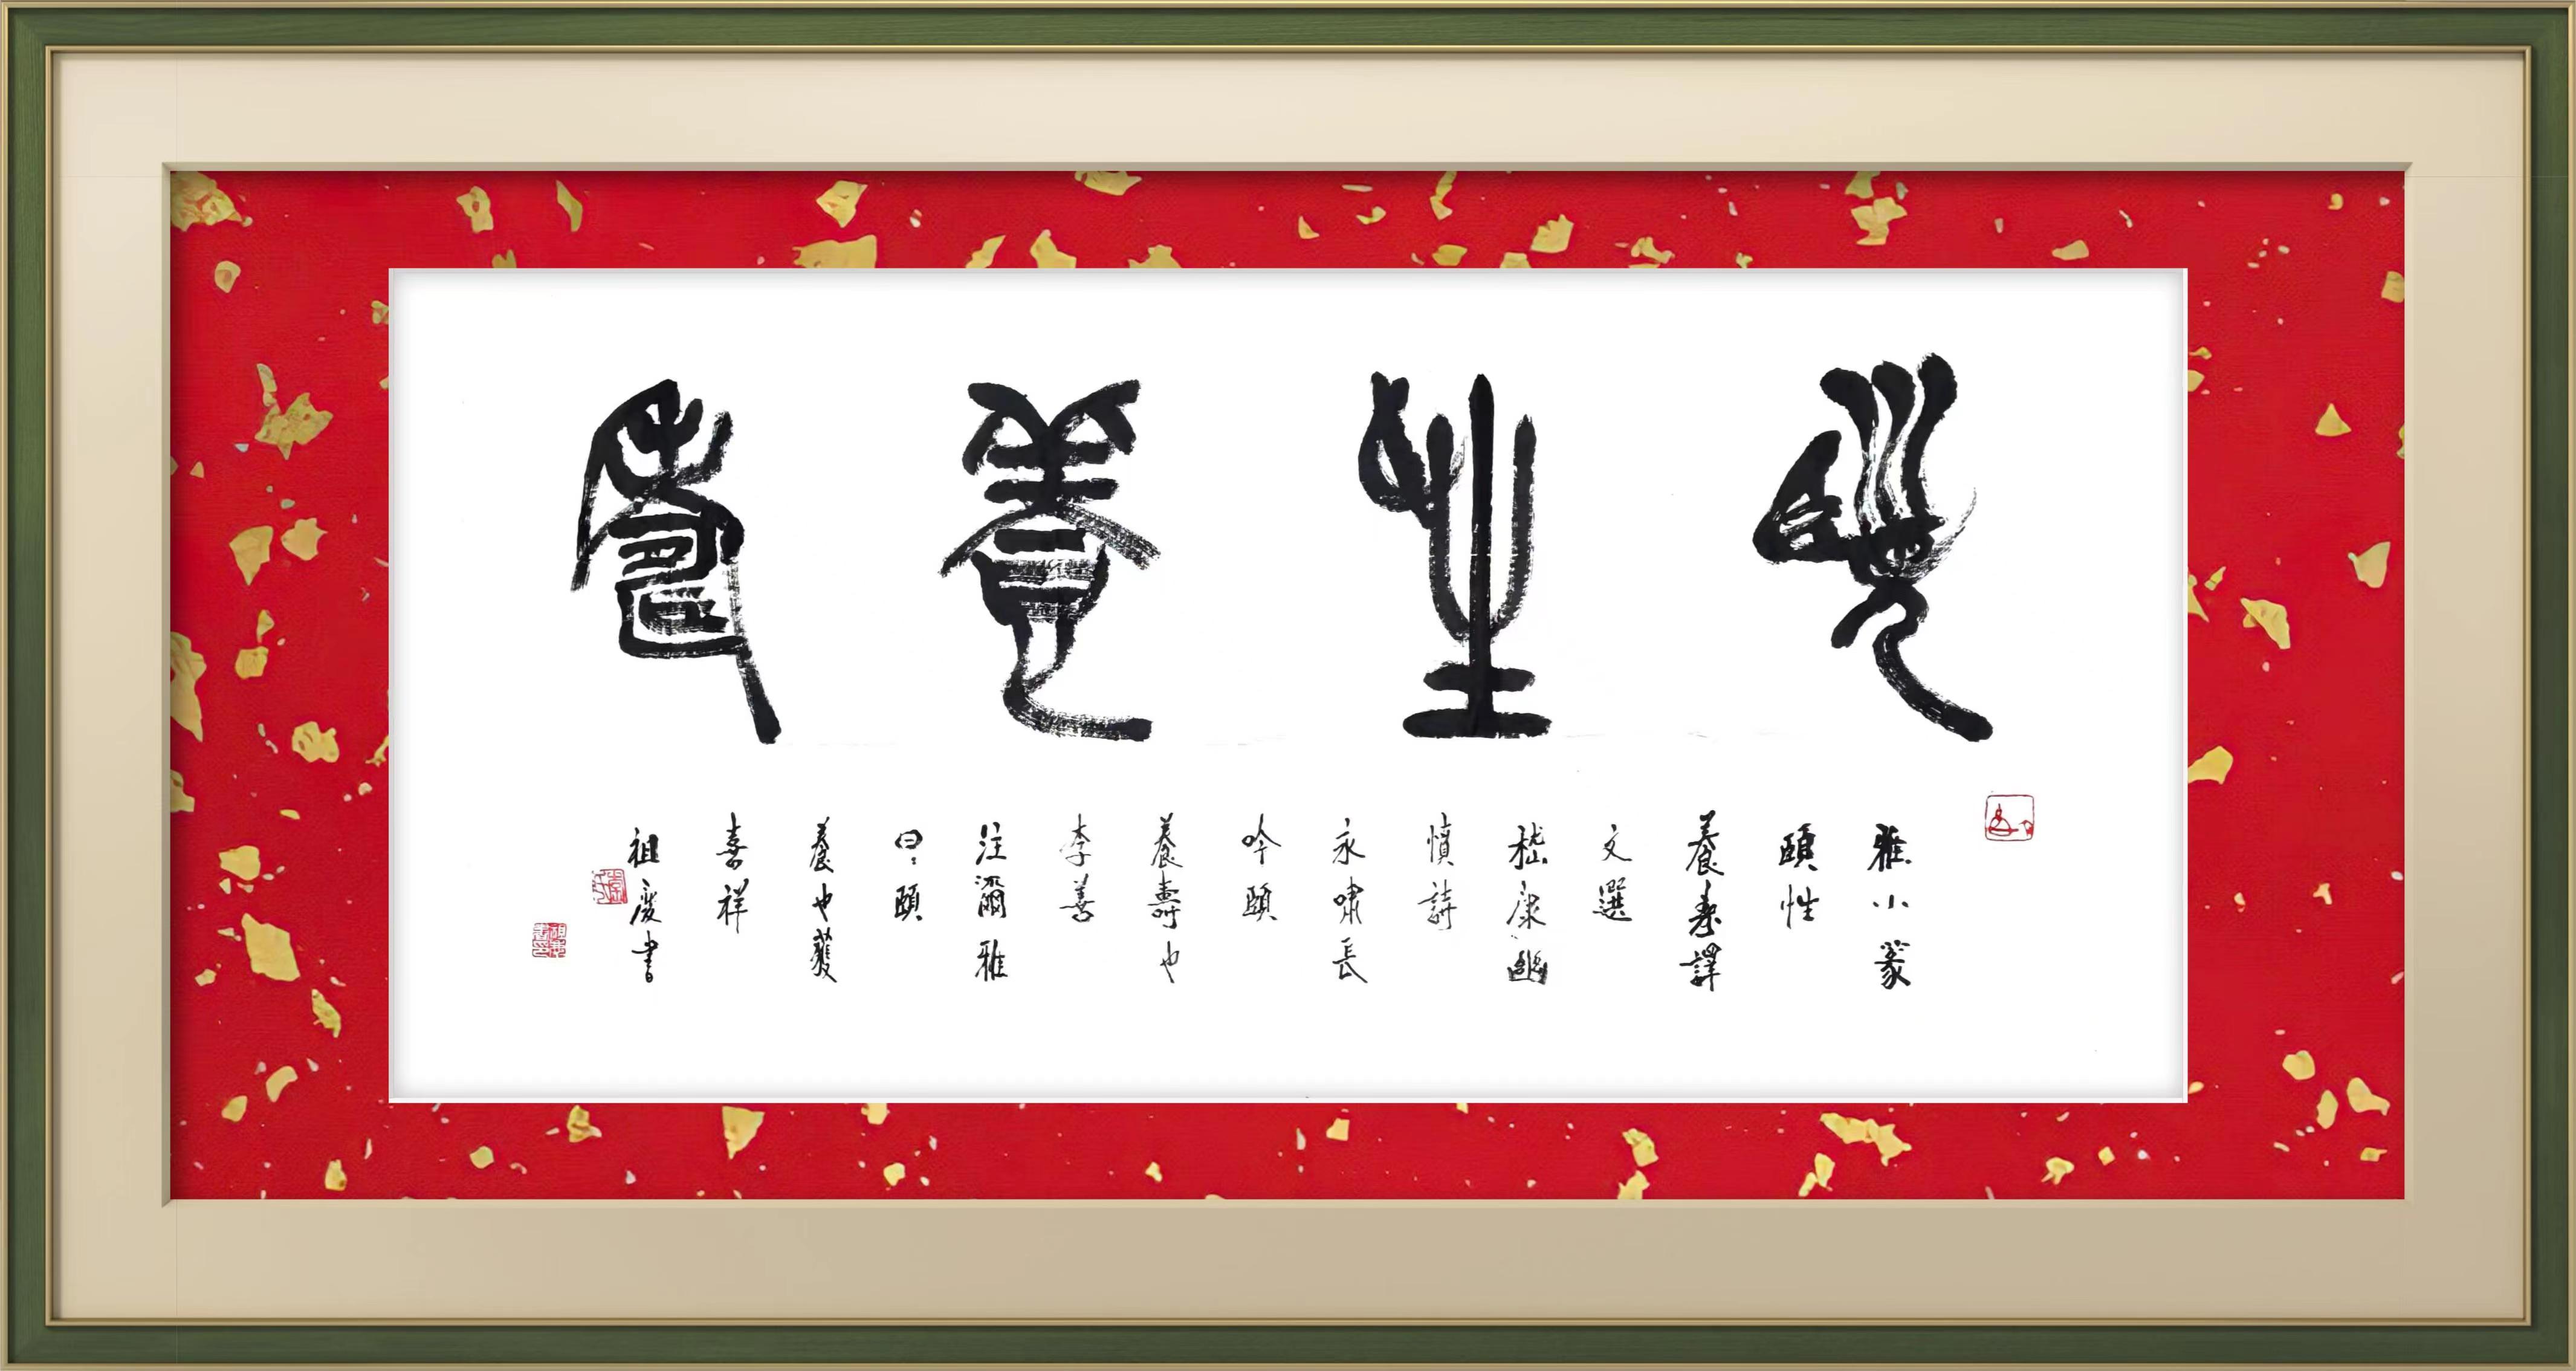 頤性養壽
雅小篆
頤性
養壽譯
文選
嵇康幽
憤詩
永嘯長
吟頤
養壽也
李善
注爾雅
曰頤
養也
喜祥
祖慶書